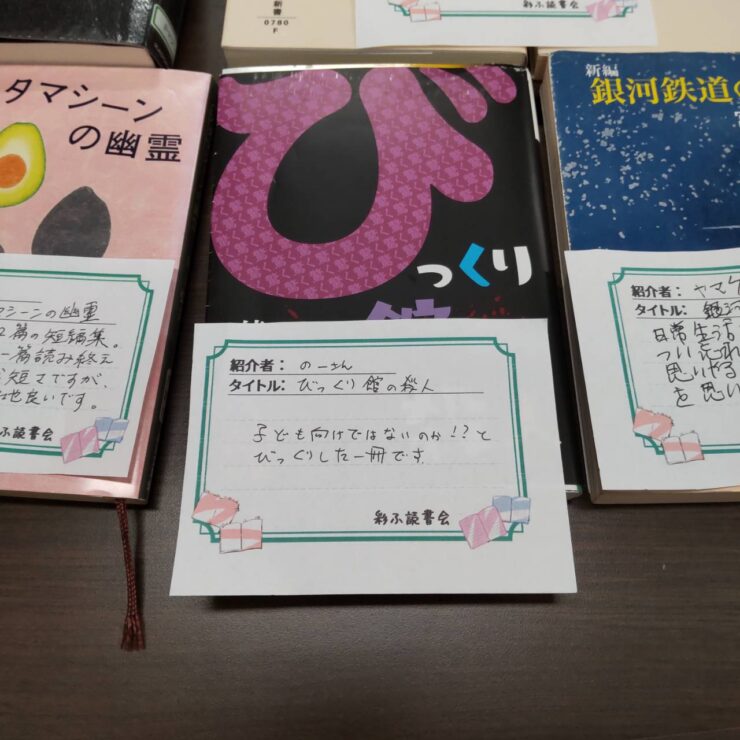 新書
0780
F
彩ふ読書会
タマシーン
の幽霊
マシーンの幽霊
篇の短編集。
一篇読み終え
短さですが、
地良いです。
彩ふ読書会
びっくり
館
紹介者: のーさん
タイトル: びっくり館の殺人
子ども向けではないのか!?と
びっくりした一冊です。
彩ふ読書会
新編
銀河鉄道の
紹介者: ヤマケ
タイトル: 銀河
日常生活
つい忘れ
思いやる
を思い